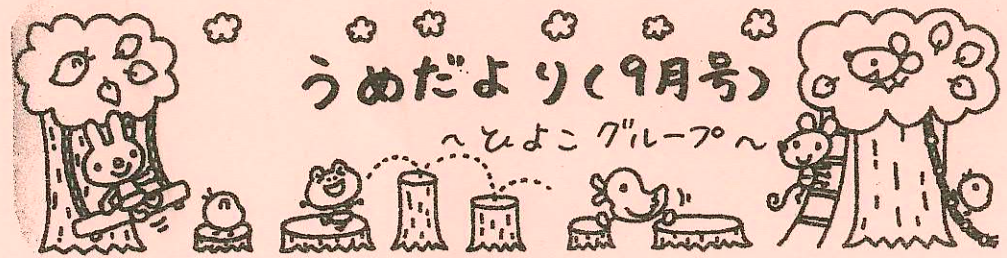 うめだより(9月号)
~ひよこグループ~